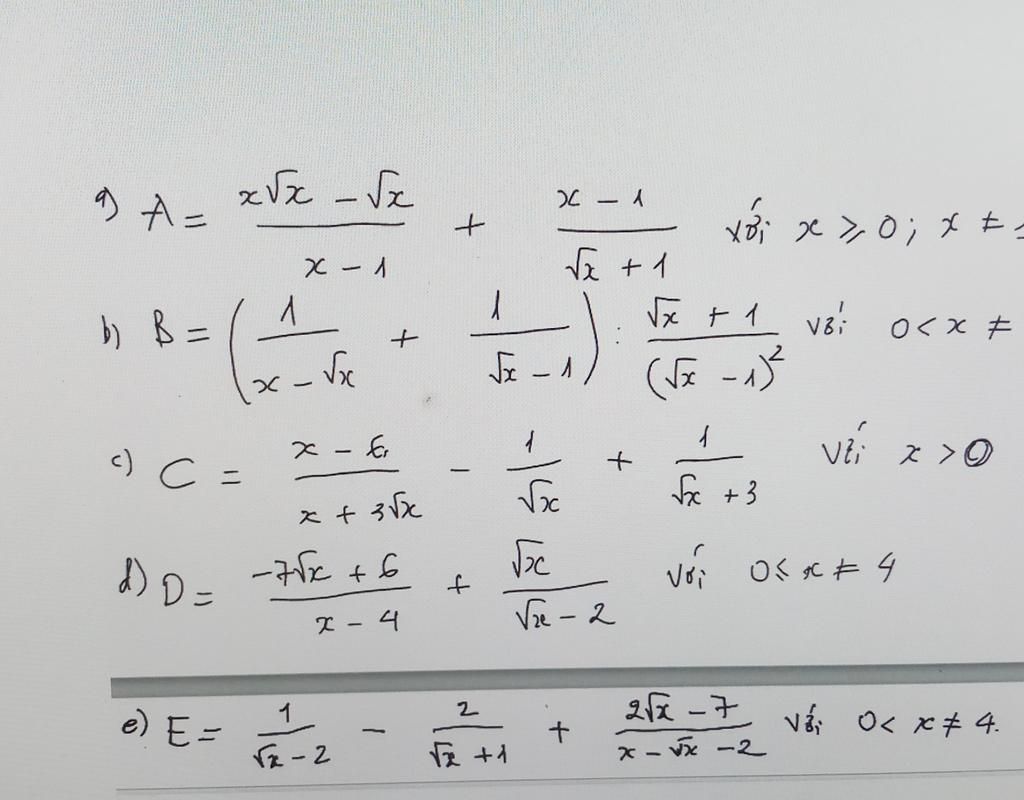 a) A = (x√x - √x)/(x - 1) + (x - 1)/(√x + 1) với x ≥ 0; x ≠ 1
b) B = (1/(x - √x) + 1/(√x - 1)) : (√x + 1)/(√x - 1)² với 0 < x ≠
c) C = (x - 6)/(x + 3√x) - 1/√x + 1/(√x + 3) với x > 0
d) D = (-7√x + 6)/(x - 4) + √x/(√x - 2) với 0 ≤ x ≠ 4
e) E = 1/(√x - 2) - 2/(√x + 1) + (2√x - 7)/(x - √x - 2) với 0 < x ≠ 4.